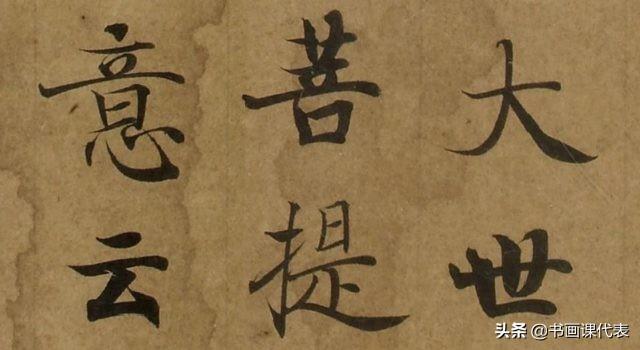 大世
菩提
意云
头条 @书画课代表